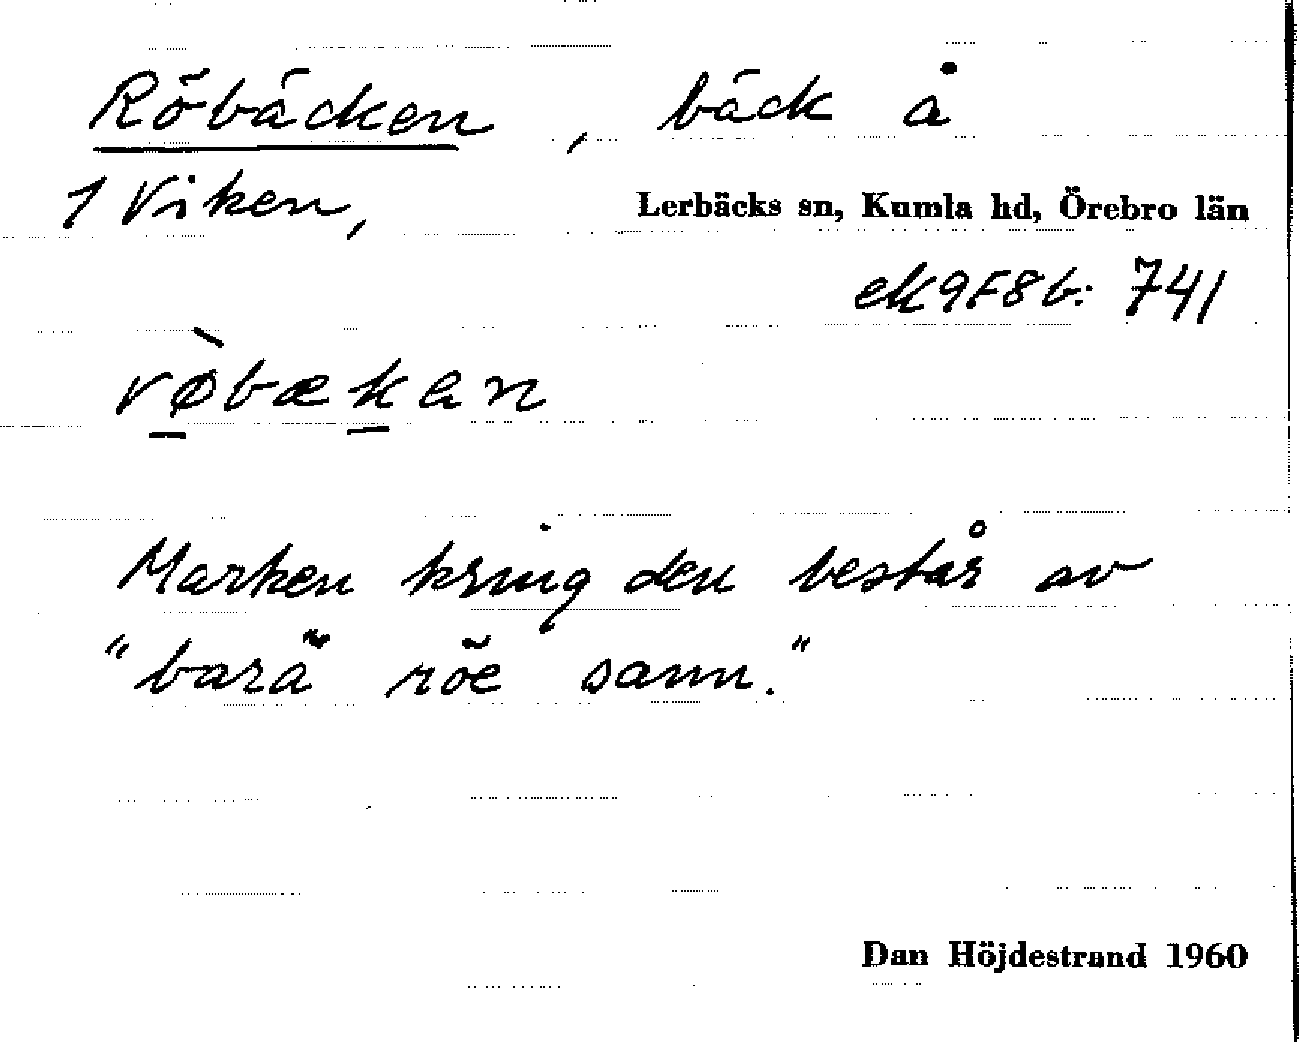 Röbäcken, bäck å
1 Viken, Lerbäcks sn, Kumla hd, Örebro län
ek9F8b: 741
rø̀bækan
Marken kring den består av
"barä röe sann."
Dan Höjdestrand 1960